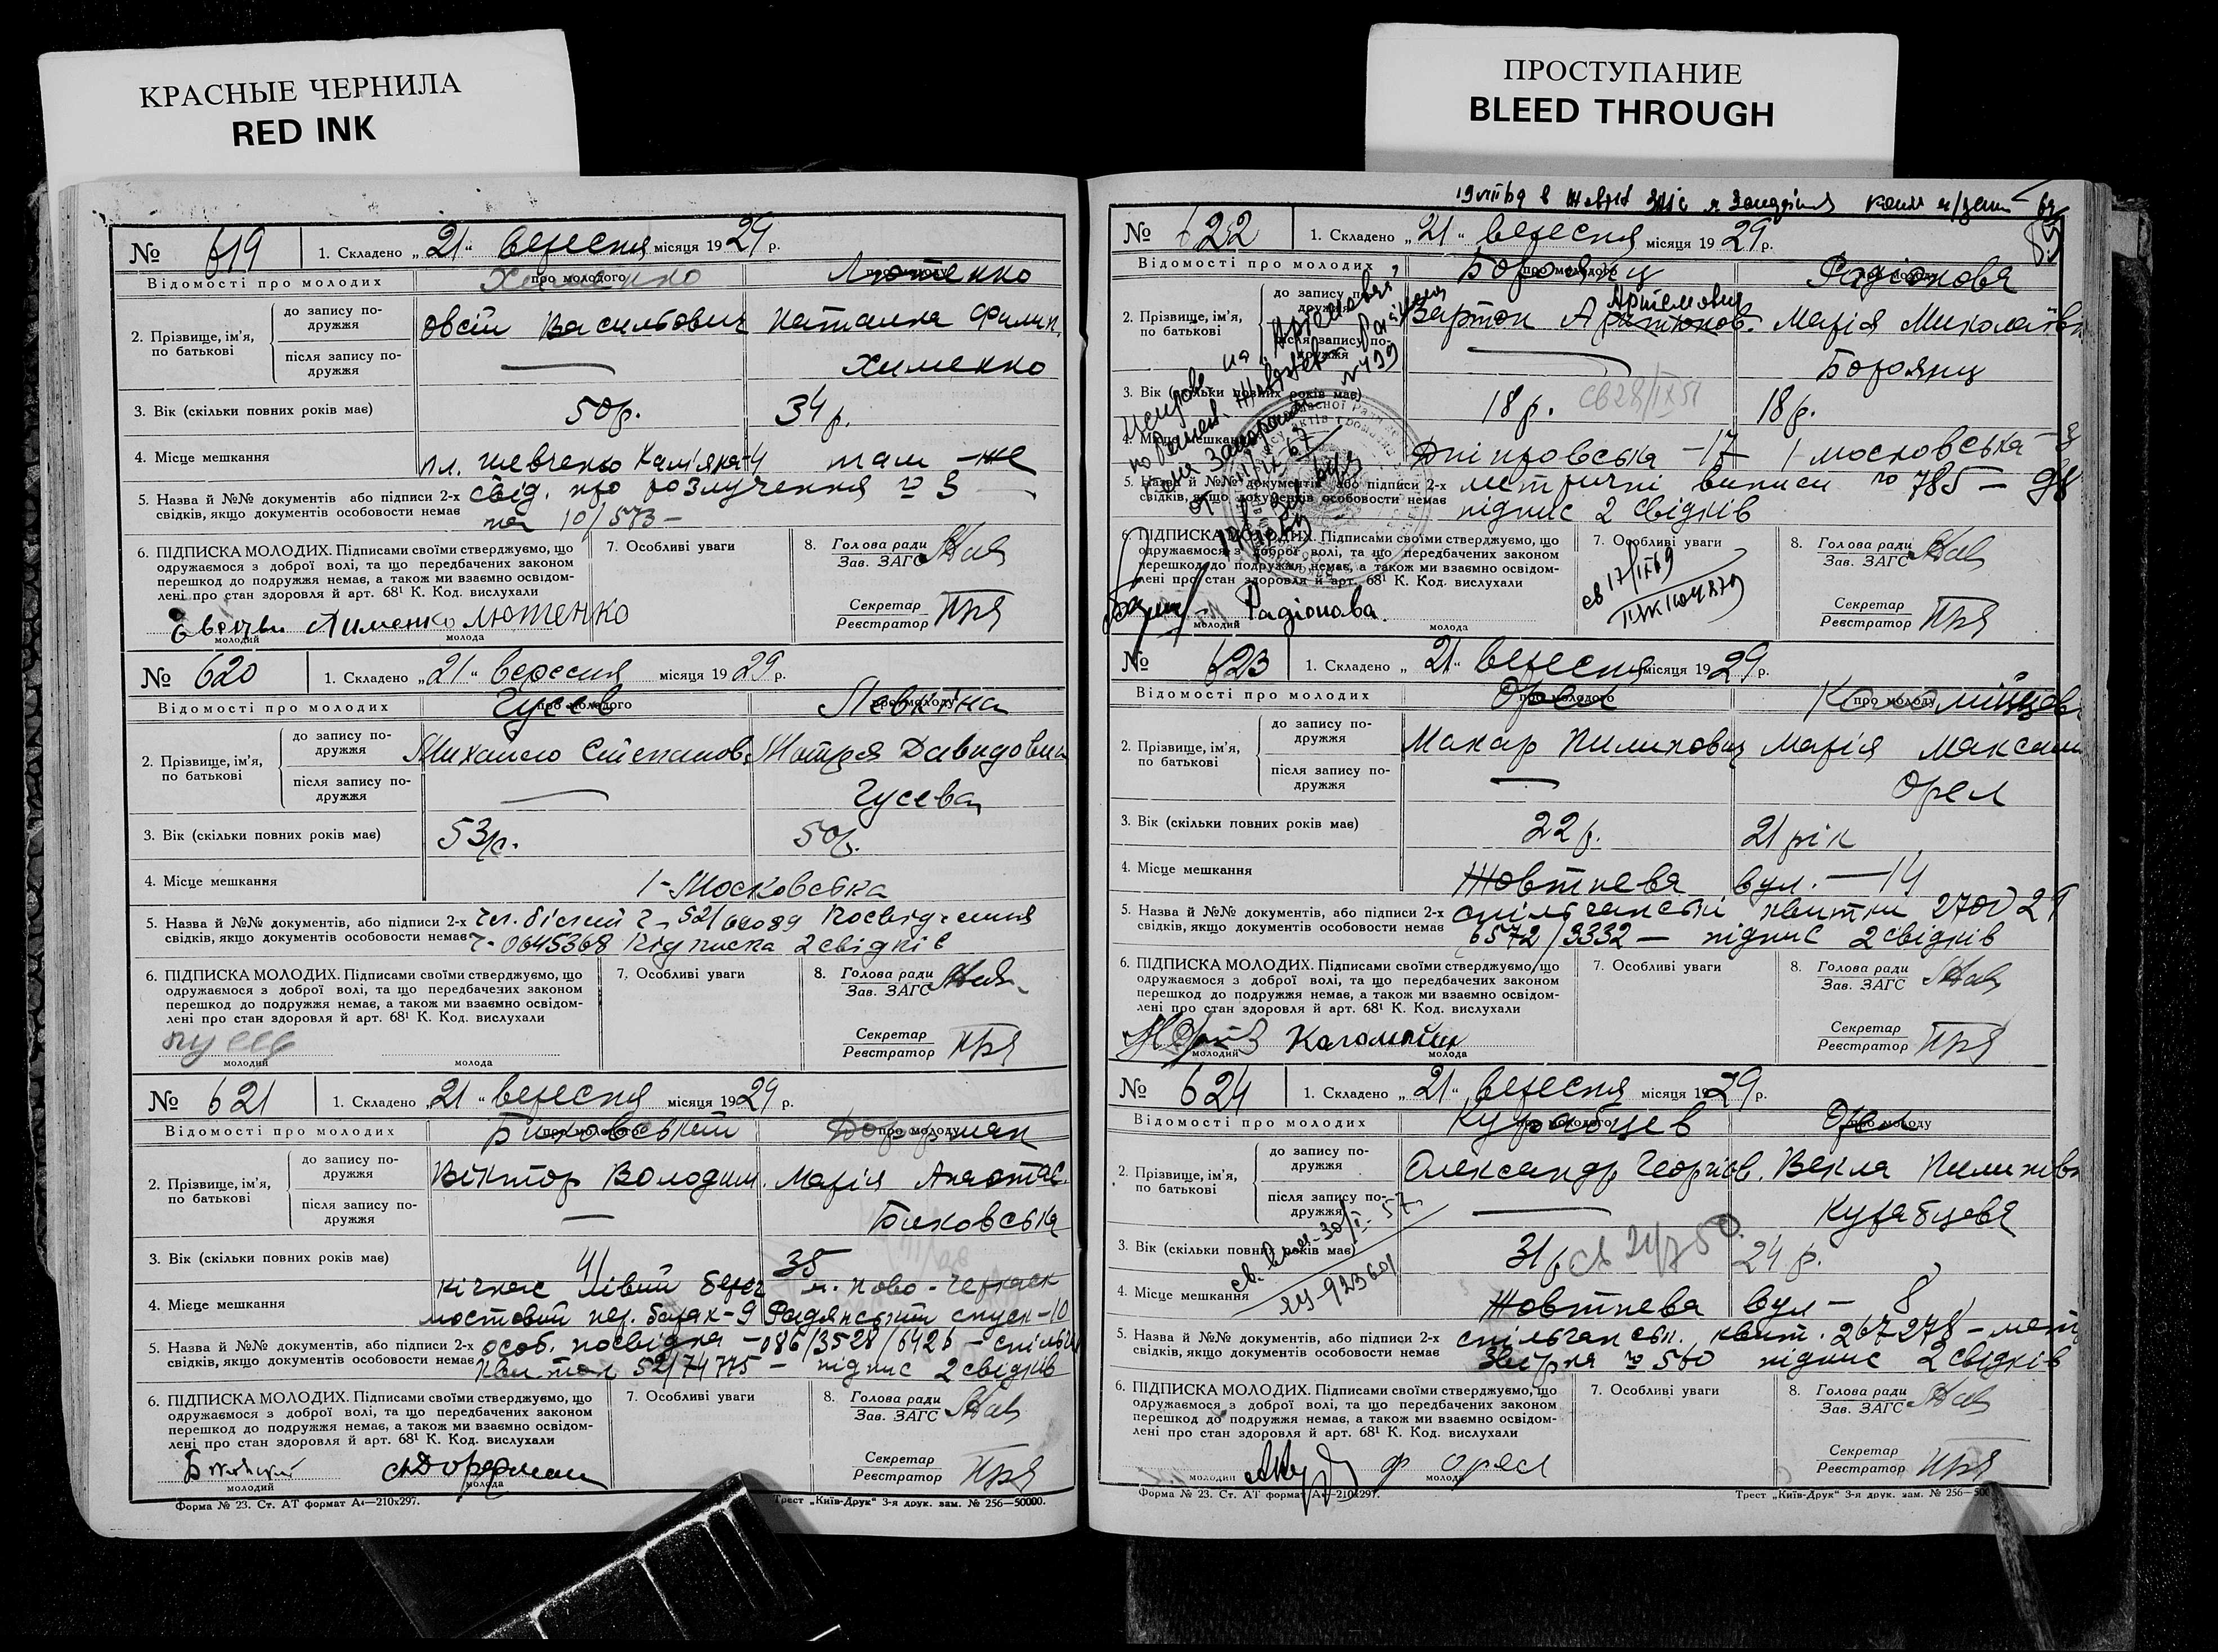 КРАСНЫЕ ЧЕРНИЛА
RED INK
ПРОСТУПАНИЕ
BLEED THROUGH
№ 619 1. Складено „21“ вересня місяця 1929 р.
Відомості про молодих про молодого Хименко про молоду Лютенко
2. Прізвище, ім'я, по батькові
до запису подружжя Овсій Васильович Наталка Филип.
після запису подружжя — Хименко
3. Вік (скільки повних років має) 50 р. 34 р.
4. Місце мешкання пл. Шевченко Кам'яна-4 там-же
5. Назва й №№ документів або підписи 2-х свід. про розлучення № 3
свідків, якщо документів особовости немає 10/573 —
6. ПІДПИСКА МОЛОДИХ. Підписами своїми стверджуємо, що 7. Особливі уваги 8. Голова ради
одружаємося з доброї волі, та що передбачених законом Зав. ЗАГС
перешкод до подружжя немає, а також ми взаємно освідом-
лені про стан здоровля й арт. 68¹ К. Код. вислухали Секретар
Лютенко Реєстратор
молодий молода
№ 620 1. Складено „21“ вересня місяця 1929 р.
Відомості про молодих про молодого Гусев про молоду Певкіна
2. Прізвище, ім'я, по батькові
до запису подружжя Михайло Степанов. Мотря Давидовна
після запису подружжя — Гусева
3. Вік (скільки повних років має) 53 р. 50 р.
4. Місце мешкання 1-Московська
5. Назва й №№ документів, або підписи 2-х чл. білет 521/62089 Посвідчення
свідків, якщо документів особовости немає 0645368 Підписка 2 свідків
6. ПІДПИСКА МОЛОДИХ. Підписами своїми стверджуємо, що 7. Особливі уваги 8. Голова ради
одружаємося з доброї волі, та що передбачених законом Зав. ЗАГС
перешкод до подружжя немає, а також ми взаємно освідом-
лені про стан здоровля й арт. 68¹ К. Код. вислухали Секретар
Реєстратор
молодий молода
№ 621 1. Складено „21“ вересня місяця 1929 р.
Відомості про молодих про молодого Биховський про молоду Дорфман
2. Прізвище, ім'я, по батькові
до запису подружжя Віктор Володим. Марія Анастас.
після запису подружжя — Биховська
3. Вік (скільки повних років має) 41 35
Кічкас Лівий берег м. Ново-Черкаск
4. Місце мешкання мостовий пер. барак-9 Радянський спуск-10
5. Назва й №№ документів, або підписи 2-х особ. посвідка — 086/3528/6426 —
свідків, якщо документів особовости немає Квиток 52/74775 — підпис 2 свідків
6. ПІДПИСКА МОЛОДИХ. Підписами своїми стверджуємо, що 7. Особливі уваги 8. Голова ради
одружаємося з доброї волі, та що передбачених законом Зав. ЗАГС
перешкод до подружжя немає, а також ми взаємно освідом-
лені про стан здоровля й арт. 68¹ К. Код. вислухали Секретар
Биховский Дорфман Реєстратор
молодий молода
Форма № 23. Ст. АТ формат А₄—210х297. Трест „Київ-Друк“ 3-я друк. зам. № 256—50000.
№ 622 1. Складено „21“ вересня місяця 1929 р.
Відомості про молодих про молодого про молоду Радіонова
2. Прізвище, ім'я, по батькові
Артемович
до запису подружжя Вартон Марія Миколаївн
після запису подружжя — Бороянц
3. Вік (скільки повних років має) 18 р. св 28/IX 51 18 р.
4. Місце мешкання Дніпровська-17 1 московська
5. Назва й №№ документів або підписи 2-х метричні виписи № 785 — 98
свідків, якщо документів особовости немає підпис 2 свідків
6. ПІДПИСКА МОЛОДИХ. Підписами своїми стверджуємо, що 7. Особливі уваги 8. Голова ради
одружаємося з доброї волі, та що передбачених законом Зав. ЗАГС
перешкод до подружжя немає, а також ми взаємно освідом-
лені про стан здоровля й арт. 68¹ К. Код. вислухали Секретар
Радіонова Реєстратор
молодий молода
№ 623 1. Складено „21“ вересня місяця 1929 р.
Відомості про молодих про молодого Орел про молоду
2. Прізвище, ім'я, по батькові
до запису подружжя Макар Пилипович Марія Максим
після запису подружжя — Орел
3. Вік (скільки повних років має) 22 р. 21 рік
4. Місце мешкання Жовтнева вул. — 14
5. Назва й №№ документів, або підписи 2-х спільчанські квитки 270029
свідків, якщо документів особовости немає 6572/3332 — підпис 2 свідків
6. ПІДПИСКА МОЛОДИХ. Підписами своїми стверджуємо, що 7. Особливі уваги 8. Голова ради
одружаємося з доброї волі, та що передбачених законом Зав. ЗАГС
перешкод до подружжя немає, а також ми взаємно освідом-
лені про стан здоровля й арт. 68¹ К. Код. вислухали Секретар
Реєстратор
молодий молода
№ 624 1. Складено „21“ вересня місяця 1929 р.
Відомості про молодих про молодого Курабцев про молоду Орел
2. Прізвище, ім'я, по батькові
до запису подружжя Олександр Георгіов. Векла Пилипівн
після запису подружжя — Курабцева
3. Вік (скільки повних років має) 31 р. 24 р.
4. Місце мешкання Жовтнева вул — 8
5. Назва й №№ документів, або підписи 2-х спільчанськ. квит. 267278 —
свідків, якщо документів особовости немає № 560 підпис 2 свідків
6. ПІДПИСКА МОЛОДИХ. Підписами своїми стверджуємо, що 7. Особливі уваги 8. Голова ради
одружаємося з доброї волі, та що передбачених законом Зав. ЗАГС
перешкод до подружжя немає, а також ми взаємно освідом-
лені про стан здоровля й арт. 68¹ К. Код. вислухали Секретар
ф орел Реєстратор
молодий молода
Форма № 23. Ст. АТ формат А₄—210х297. Трест „Київ-Друк“ 3-я друк. зам. № 256—500